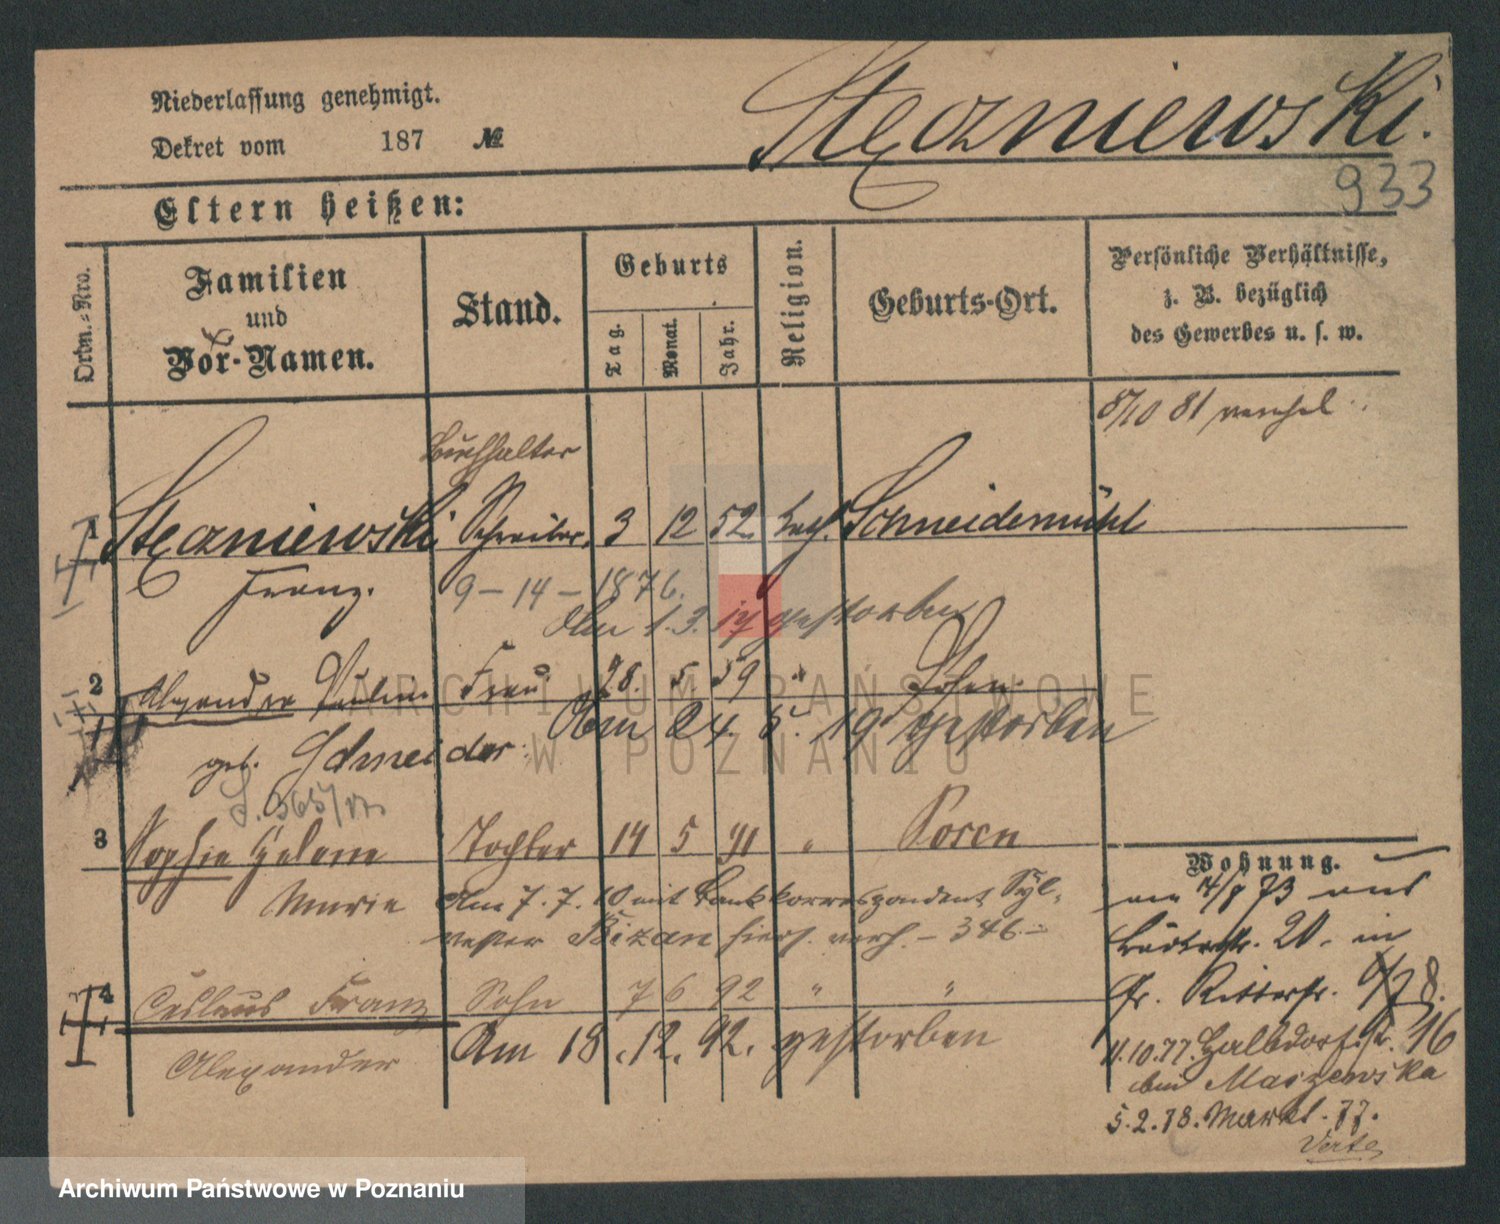 Niederlassung genehmigt.
Dekret vom 187 №
Stęczniewski.
933
Eltern heißen:
Ordn.-Nro.
Familien
und
Vor-Namen.
Stand.
Geburts
Tag.
Monat.
Jahr.
Religion.
Geburts-Ort.
Persönliche Verhältnisse,
z. B. bezüglich
des Gewerbes u. s. w.
8/10 81
Buchhalter
1 Stęczniewski Schreiber. 3 12 52. kath. Schneidemühl
Franz. 9-14-1876.
Am 1.3. 19 gestorben
2 Pauline Frau 28. 5. 59 " Posen.
Am 24. 5. 19 gestorben
geb. Schneider
S. 365/
3 Sophie Helene Tochter 14 5 91 " Posen
Marie Am 7. 7. 10 mit Bankkorrespondent Syl-
vester Bizan hiers. verh. - 346 -
4 Ceslaus Franz Sohn 7 6 92 " "
Alexander Am 18. 12. 92. gestorben
Wohnung.
73 aus
20. in
Gr. Ritterstr. 8.
11.10.77. Halbdorfstr. 16
bei Maszewska
5.2.78. Markt. 77.
Verte
ARCHIWUM PAŃSTWOWE
W POZNANIU
Archiwum Państwowe w Poznaniu